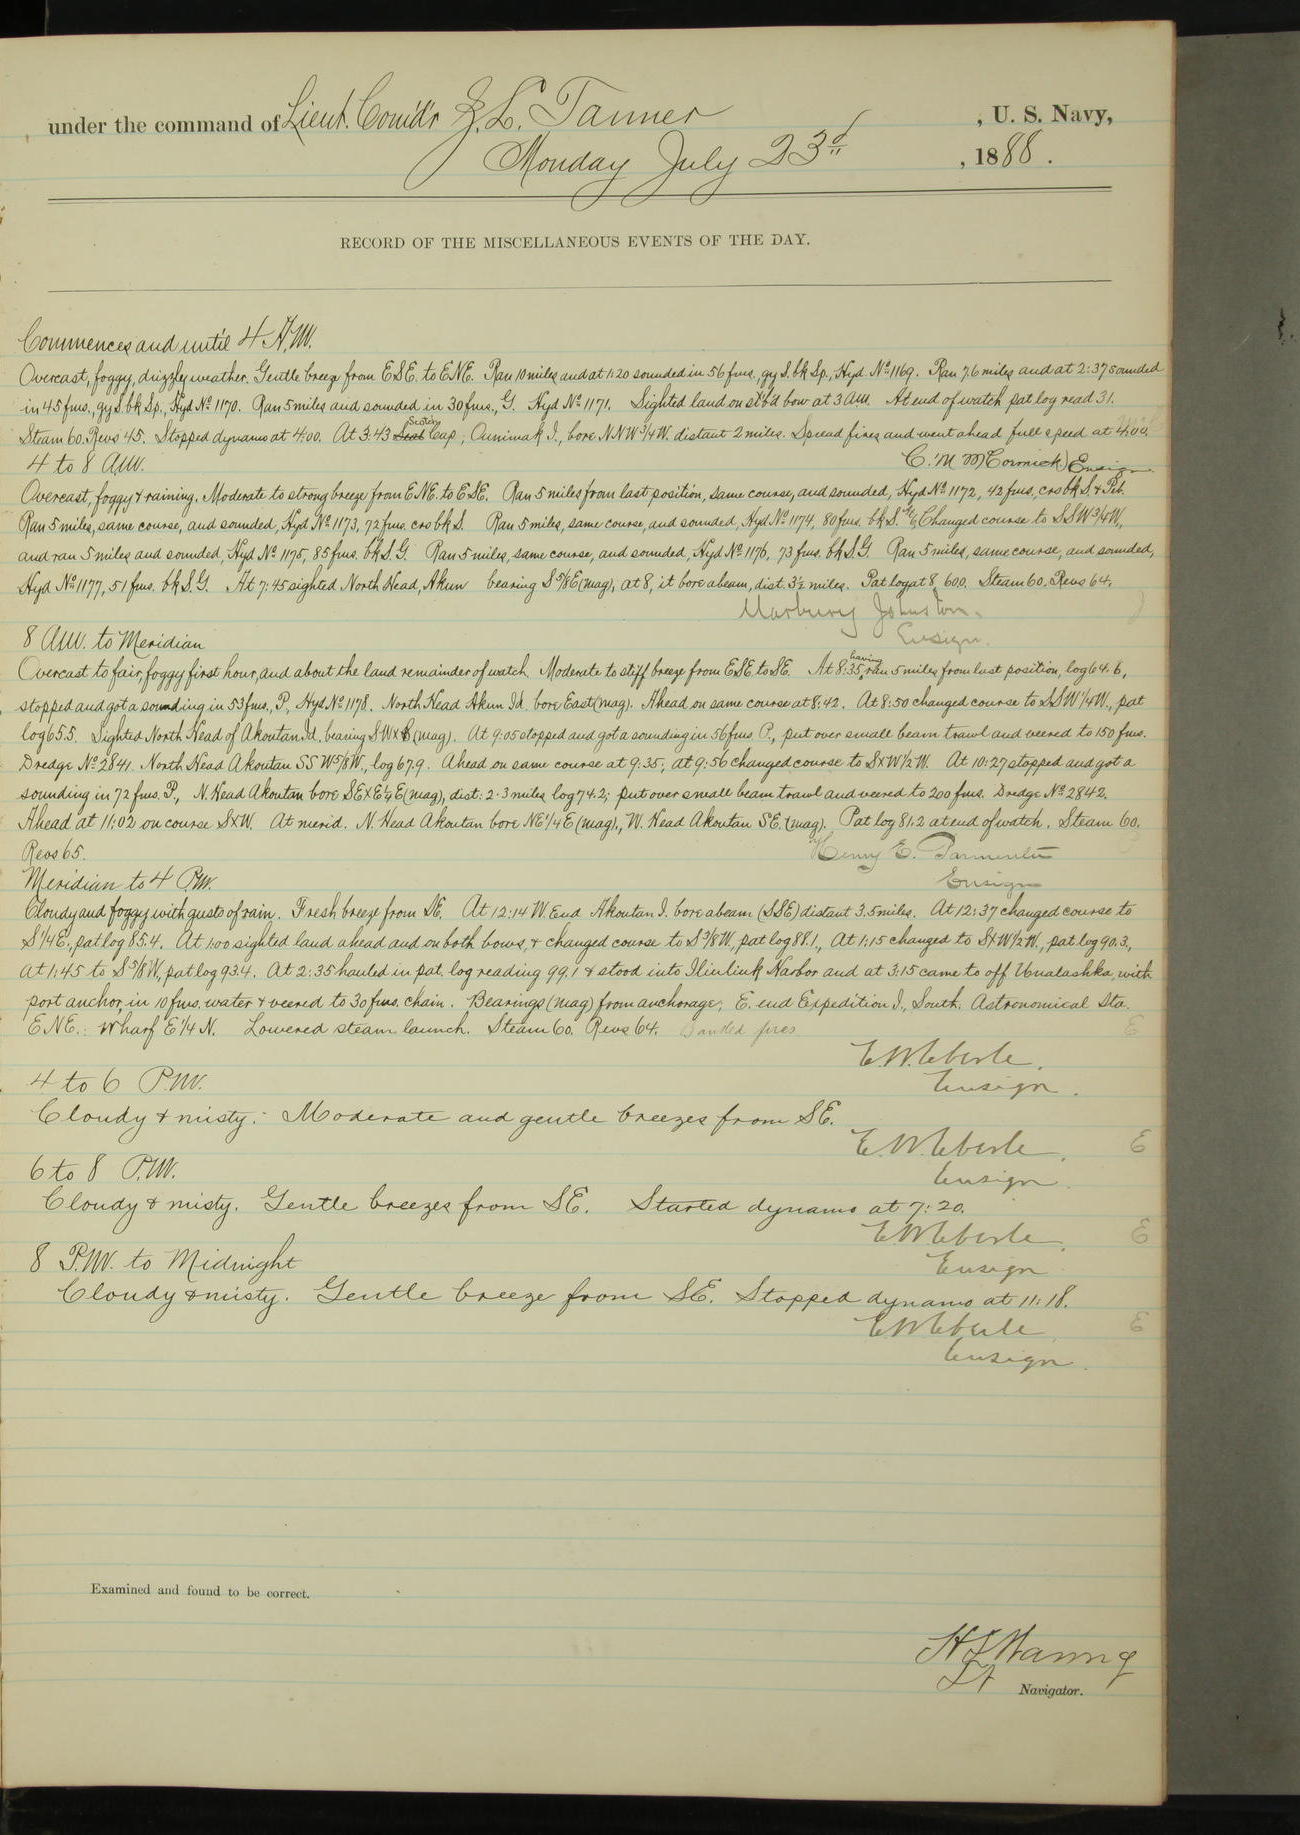 under the command of Lieut. Comd'r Z. L. Tanner, U. S. Navy,
Monday July 23d, 1888.
RECORD OF THE MISCELLANEOUS EVENTS OF THE DAY.
Commences and until 4 A.M.
Overcast, foggy, drizzly weather. Gentle breeze from ESE. to ENE. Ran 10 miles and at 1:20 sounded in 56 fms., gy S. bk Sp., Hyd No 1169. Ran 7.6 miles and at 2:37 sounded
in 45 fms., gy S. bk Sp., Hyd No 1170. Ran 5 miles and sounded in 30 fms., G. Hyd No 1171. Sighted land on st'b'd bow at 3 A.M. At end of watch pat log read 31.
Steam 60. Revs 45. Stopped dynamo at 4:00. At 3:43 Cap, Ounimak I., bore NNW 3/4 W. distant 2 miles. Spread fires and went ahead full speed at 4:00.
C. M. McCormick, Ensign
4 to 8 A.M.
Overcast, foggy & raining. Moderate to strong breeze from ENE. to ESE. Ran 5 miles from last position, same course, and sounded, Hyd No 1172, 42 fms, crs bk S. & Peb.
Ran 5 miles, same course, and sounded, Hyd No 1173, 72 fms. crs bk S. Ran 5 miles, same course, and sounded, Hyd No 1174, 80 fms. bk S. Changed course to SSW 3/4 W,
and ran 5 miles and sounded, Hyd No 1175, 85 fms. bk S. G. Ran 5 miles, same course, and sounded, Hyd No 1176, 73 fms. bk S. G. Ran 5 miles, same course, and sounded,
Hyd No 1177, 51 fms. bk S. G. At 7:45 sighted North Head, Akun bearing S 5/8 E (mag), at 8, it bore abeam, dist. 3 1/2 miles. Pat log at 8, 60.0. Steam 60. Revs 64.
Marbury Johnston.
Ensign.
8 A.M. to Meridian
Overcast to fair, foggy first hour, and about the land remainder of watch. Moderate to stiff breeze from ESE. to SE. At 8:35, having ran 5 miles from last position, log 64.6,
stopped and got a sounding in 53 fms., P., Hyd No 1178. North Head Akun Id. bore East (mag). Ahead on same course at 8:42. At 8:50 changed course to SSW 1/4 W., pat
log 65.5. Sighted North Head of Akoutan Id. bearing SWxS (mag). At 9:05 stopped and got a sounding in 56 fms. P., put over small beam trawl and veered to 150 fms.
Dredge No 2841. North Head Akoutan SSW 5/8 W., log 67.9. Ahead on same course at 9:35, at 9:56 changed course to SxW 1/2 W. At 10:27 stopped and got a
sounding in 72 fms. P., N. Head Akoutan bore SExE 1/4 E (mag), dist: 2.3 miles, log 74.2; put over small beam trawl and veered to 200 fms. Dredge No 2842.
Ahead at 11:02 on course SxW. At merid. N. Head Akoutan bore NE 1/4 E (mag)., W. Head Akoutan SE. (mag). Pat log 81.2 at end of watch. Steam 60.
Revs 65.
Henry E. Parmenter
Ensign
Meridian to 4 P.M.
Cloudy and foggy with gusts of rain. Fresh breeze from SE. At 12:14 W. End Akoutan I. bore abeam (SSE) distant 3.5 miles. At 12:37 changed course to
S 1/4 E., pat log 85.4. At 1:00 sighted land ahead and on both bows, & changed course to S 3/8 W., pat log 88.1., At 1:15 changed to SxW 1/2 W., pat log 90.3.,
at 1:45 to S 3/8 W, pat log 93.4. At 2:35 hauled in pat. log reading 99.1 & stood into Iliuliuk Harbor and at 3:15 came to off Unalashka, with
port anchor, in 10 fms. water & veered to 30 fms. chain. Bearings (mag) from anchorage; E. end Expedition I., South. Astronomical Sta.
ENE.: Wharf E 1/4 N. Lowered steam launch. Steam 60. Revs 64. Banked fires
E. W. Eberle.
Ensign.
4 to 6 P.M.
Cloudy & misty: Moderate and gentle breezes from SE.
E. W. Eberle.
Ensign.
6 to 8 P.M.
Cloudy & misty. Gentle breezes from SE. Started dynamo at 7:20.
E. W. Eberle.
Ensign
8 P.M. to Midnight
Cloudy & misty. Gentle breeze from SE. Stopped dynamo at 11:18.
E. W. Eberle
Ensign.
Examined and found to be correct.
Lt
Navigator.